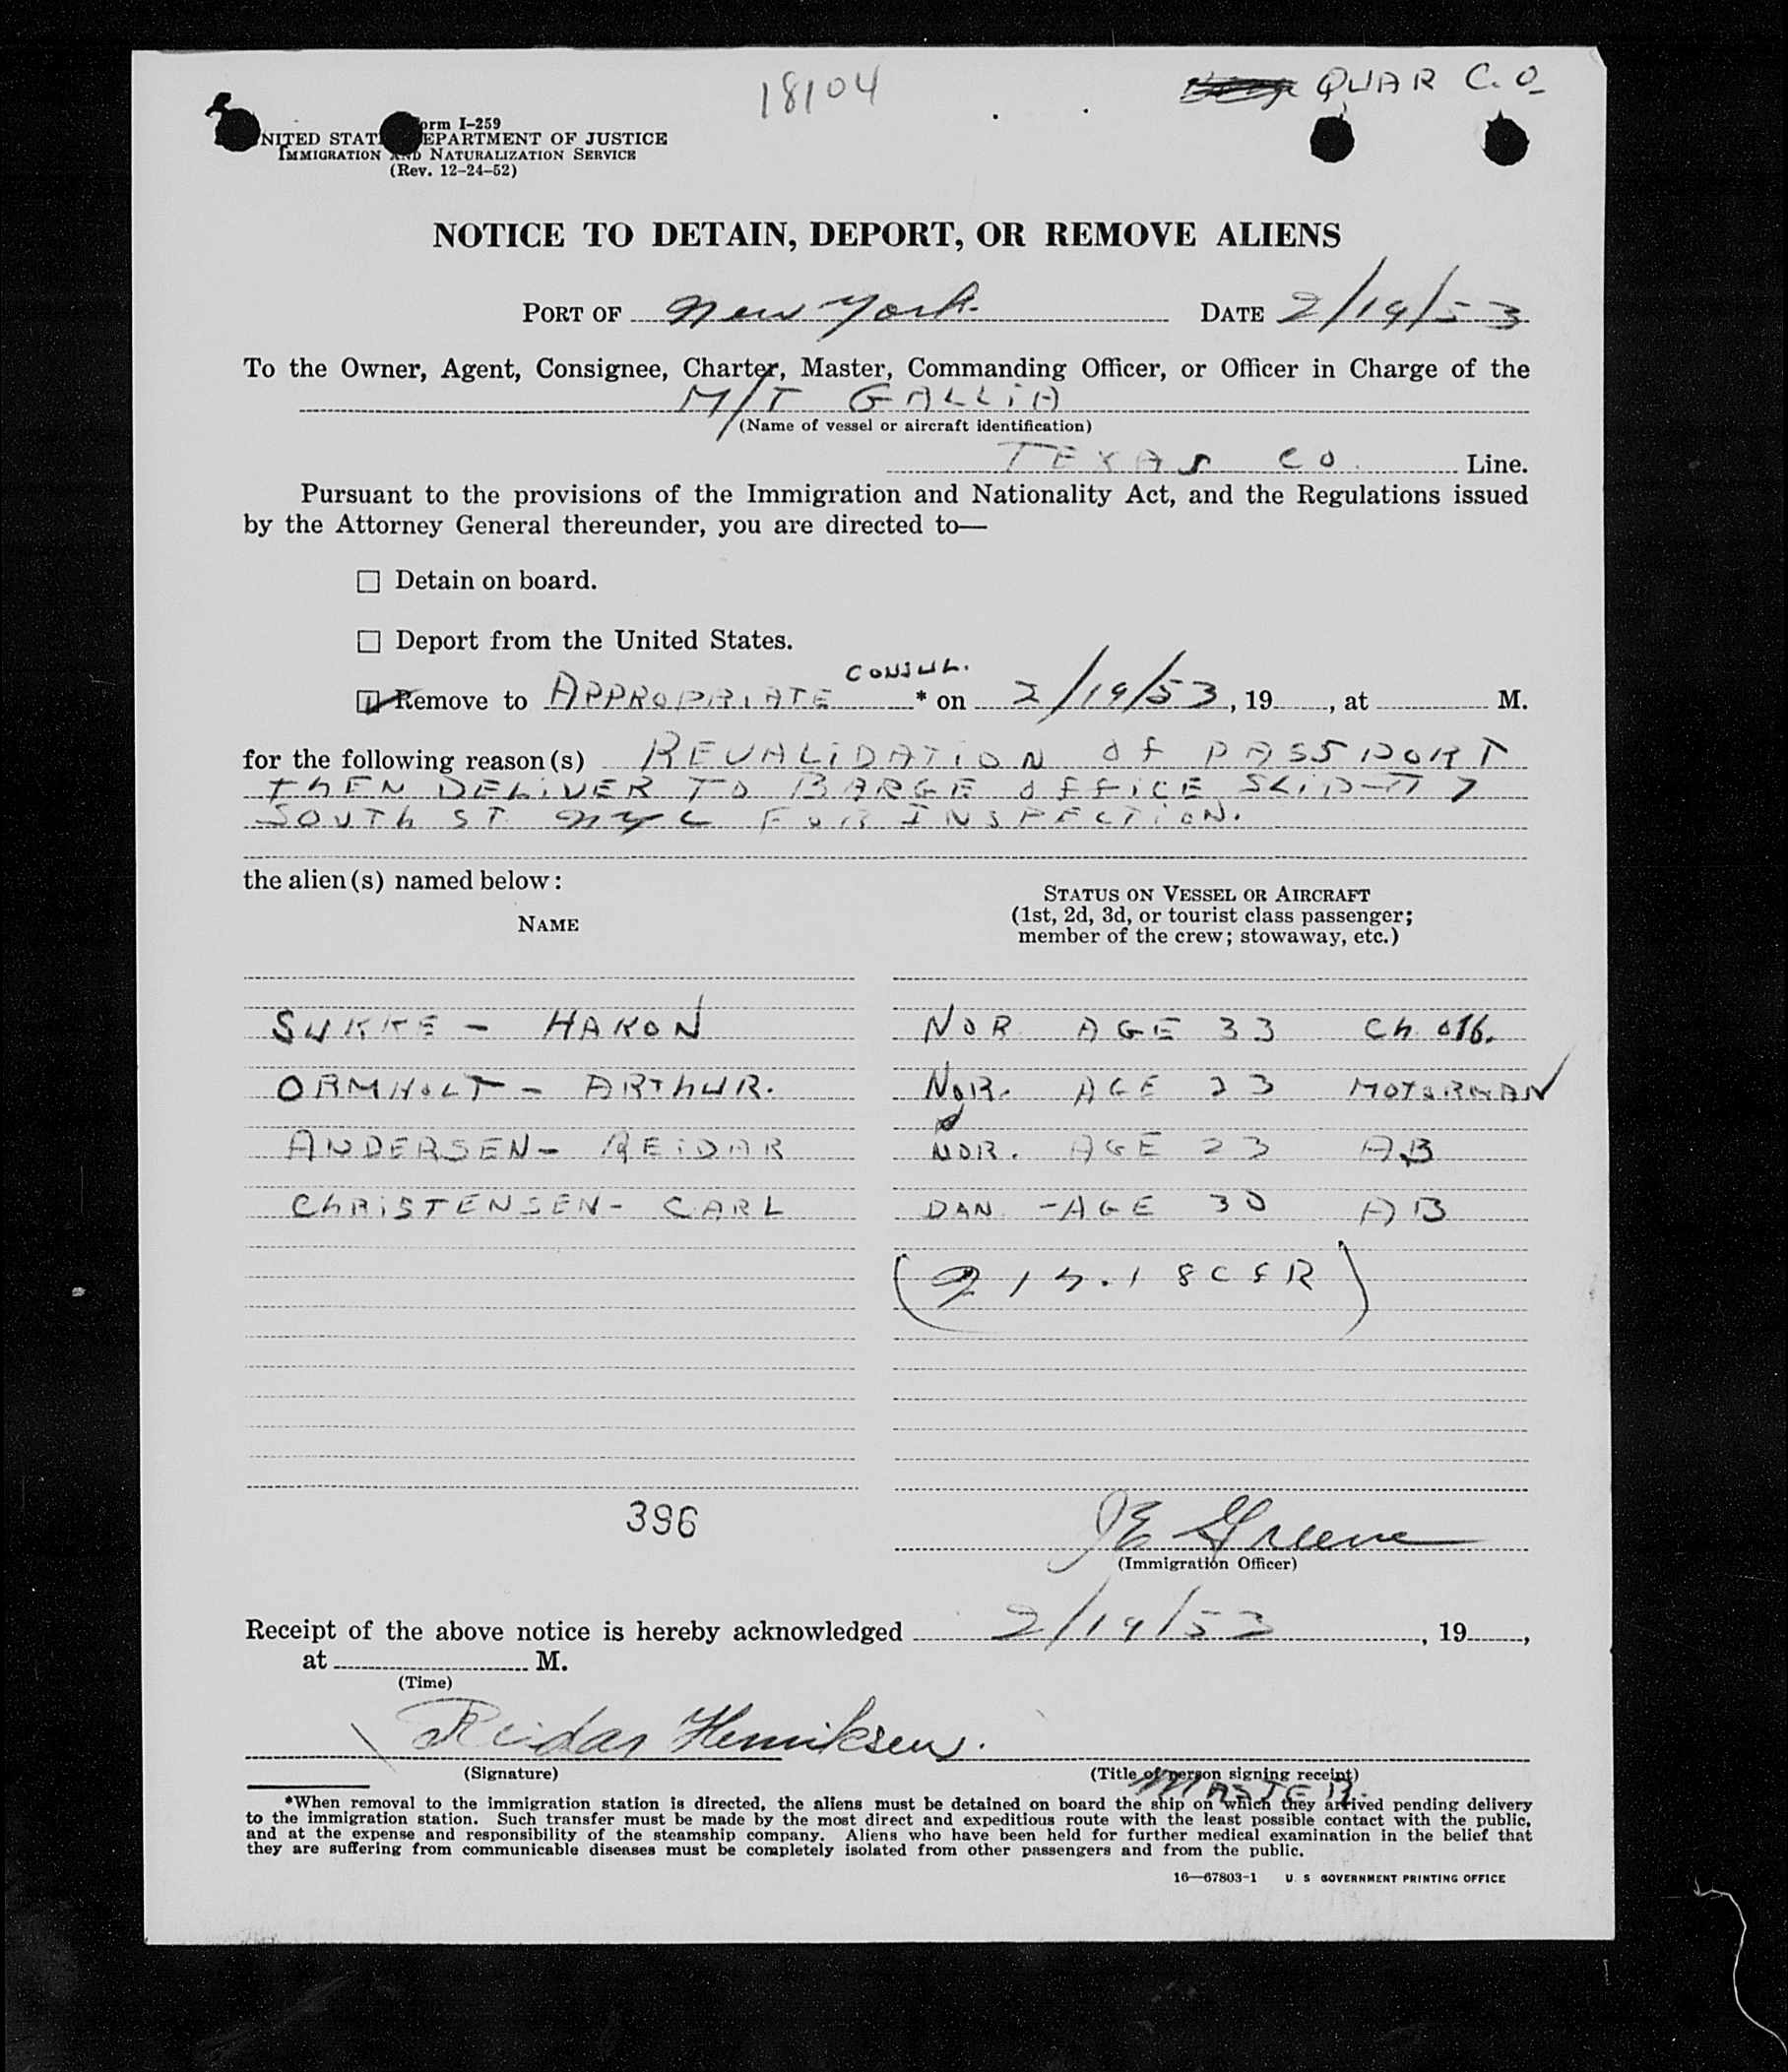 18104
QUAR C. O.
Form I-259
UNITED STATES DEPARTMENT OF JUSTICE
IMMIGRATION AND NATURALIZATION SERVICE
(Rev. 12-24-52)
NOTICE TO DETAIN, DEPORT, OR REMOVE ALIENS
PORT OF New York. DATE 2/19/53
To the Owner, Agent, Consignee, Charter, Master, Commanding Officer, or Officer in Charge of the
M/T GALLIA
(Name of vessel or aircraft identification)
TEXAS CO. Line.
Pursuant to the provisions of the Immigration and Nationality Act, and the Regulations issued
by the Attorney General thereunder, you are directed to—
☐ Detain on board.
☐ Deport from the United States.
CONSUL.
Remove to APPROPRIATE * on 2/19/53, 19 , at M.
for the following reason(s) REVALIDATION OF PASSPORT
THEN DELIVER TO BARGE OFFICE SLIP-7
SOUTH ST NYC FOR INSPECTION.
the alien(s) named below:
NAME
STATUS ON VESSEL OR AIRCRAFT
(1st, 2d, 3d, or tourist class passenger;
member of the crew; stowaway, etc.)
SUKKE - HAKON NOR AGE 33 Ch. off.
ORMHOLT - ARTHUR. NOR. AGE 23 MOTORMAN
ANDERSEN - REIDAR NOR. AGE 23 AB
CHRISTENSEN - CARL DAN - AGE 30 AB
8 CFR)
396
JE Greene
(Immigration Officer)
Receipt of the above notice is hereby acknowledged 2/19/53, 19 ,
at M.
(Time)
Reidar Henriksen.
(Signature) (Title of person signing receipt)
MASTER.
*When removal to the immigration station is directed, the aliens must be detained on board the ship on which they arrived pending delivery
to the immigration station. Such transfer must be made by the most direct and expeditious route with the least possible contact with the public,
and at the expense and responsibility of the steamship company. Aliens who have been held for further medical examination in the belief that
they are suffering from communicable diseases must be completely isolated from other passengers and from the public.
16—67803-1 U. S GOVERNMENT PRINTING OFFICE